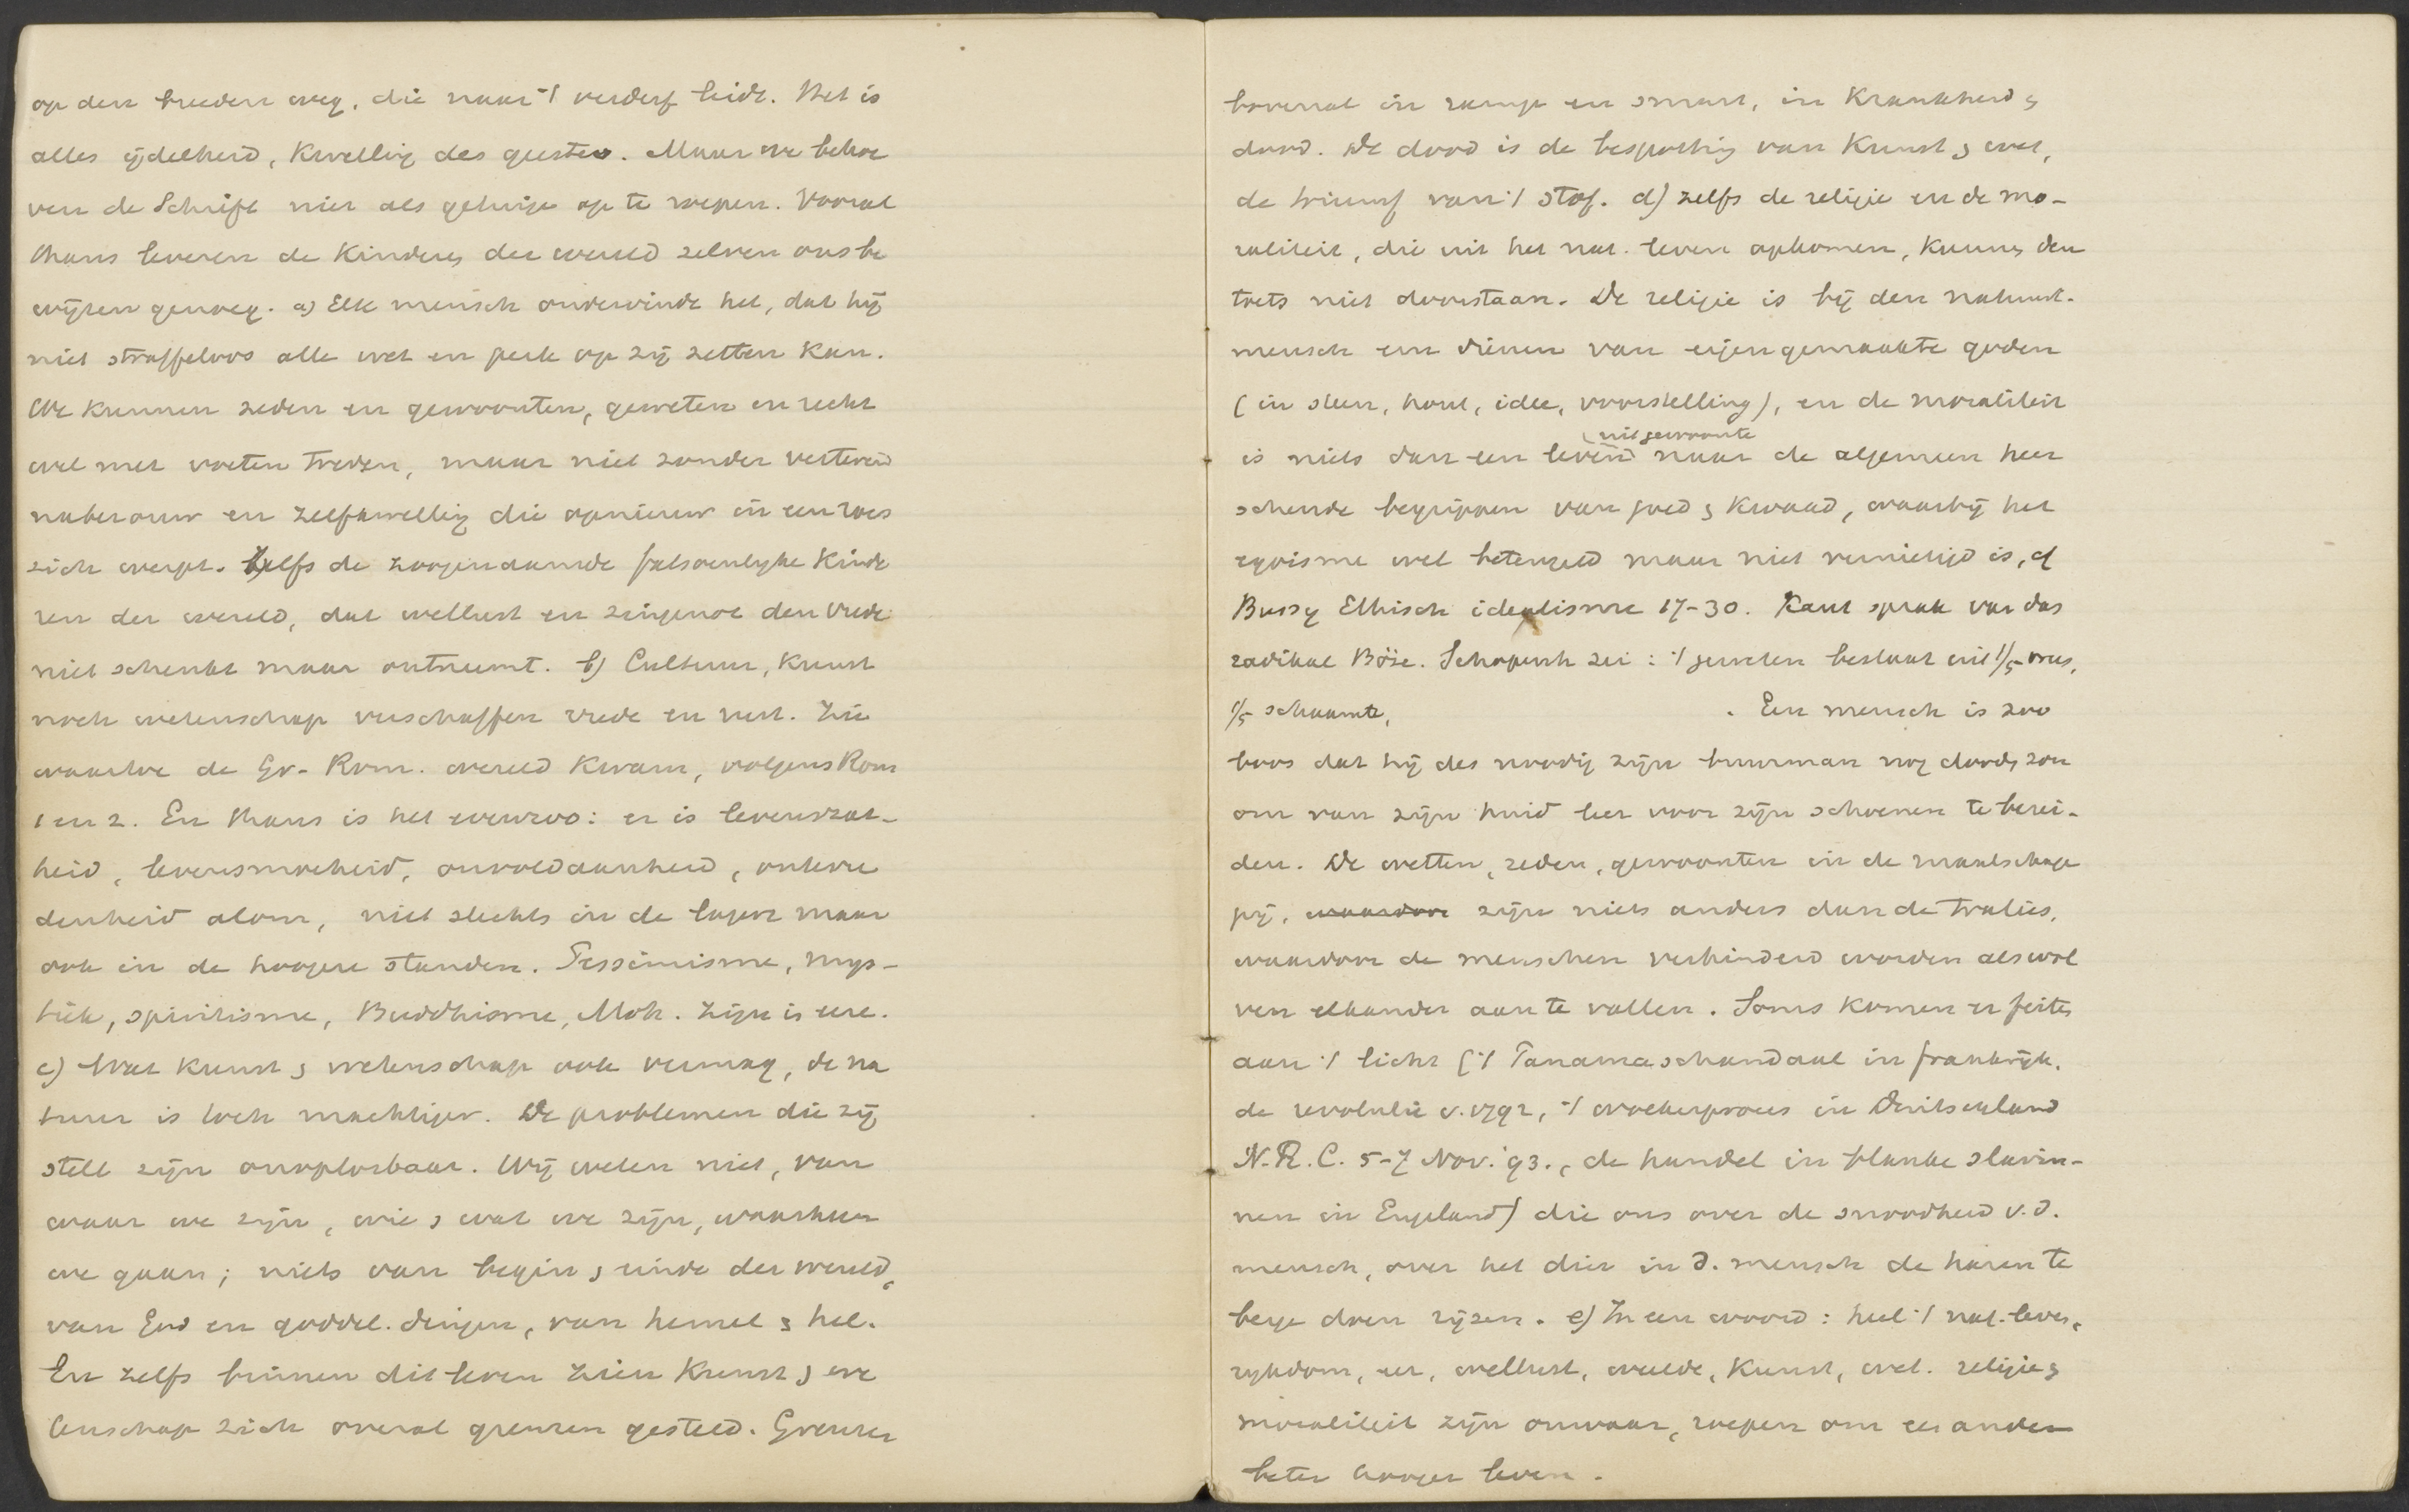 op den breeden weg, die naar 't verderf leidt. Het is
alles ijdelheid, kwelling des geestes. Maar we behoe
ven de Schrift niet als getuige op te roepen. Vooral
thans leveren de kinderen der wereld zelven ons be
wijzen genoeg. a) Elk mensch ondervindt het, dat hij
niet straffeloos alle wet en perk op zij zetten kan.
We kunnen zeden en gewoonten, geweten en recht
wel met voeten treden, maar niet zonder verterend
naberouw en zelfkwelling die opnieuw in een roes
zich werpt. Zelfs de zoogenaamde fatsoenlyke kinde
ren der wereld, dat wellust en zingenot den vrede
niet schenkt maar ontneemt. b) Cultuur, kunst
noch wetenschap verschaffen vrede en rust. Zie
waartoe de Gr-Rom. wereld kwam, volgens Rom
1 en 2. En thans is het evenzoo: er is levenszat-
heid, levensmoeheid, onvoldaanheid, ontevre
denheid alom, niet slechts in de lagere maar
ook in de hoogere standen. Pessimisme, mys-
tiek, spiritisme, Buddhisme, Moh. zijn in eere.
c) Wat kunst & wetenschap ook vermag, de na
tuur is toch machtiger. De problemen die zij
stelt zijn onoplosbaar. Wij weten niet, van
waar we zijn, wie & wat we zijn, waarheen
we gaan; niets van begin & einde der wereld,
van God en goddel. dingen, van hemel & hel.
En zelfs binnen dit leven zien kunst & we
tenschap zich overal grenzen gesteld. Grenzen
bovenal in ramp en smart, in krankheid &
dood. De dood is de bespotting van kunst & wet,
de triumf van 't stof. d) zelfs de religie en de mo-
raliteit, die uit het nat. leven opkomen, kunnen den
toets niet doorstaan. De religie is bij den natuurl.
mensch een dienen van eigengemaakte goden
(in steen, hout, idee, voorstelling), en de moraliteit
uit gewoonte
is niets dan een leven naar de algemeen heer
schende begrippen van goed & kwaad, waarbij het
egoisme wel beteugeld maar niet vernietigd is, cf
Bussy Ethisch idealisme 17-30. Kant sprak van das
radikal Böse. Schopenh zei: 't geweten bestaat uit 1/5 vrees,
1/5 schaamte, . Een mensch is zoo
boos dat hij des noodig zijn buurman nog dooden zou
om van zijn huid leer voor zijn schoenen te berei-
den. De wetten, zeden, gewoonten in de maatschap
pij, waardoor zijn niets anders dan de tralies,
waardoor de menschen verhinderd worden als wol
ven elkander aan te vallen. Soms komen er feiten
aan 't licht ('t Panamaschandaal in Frankrijk,
de revolutie v. 1792, 't woekerproces in Duitschland
N.R.C. 5-7 Nov. '93., de handel in blanke slavin-
nen in Engeland) die ons over de snoodheid v.d.
mensch, over het dier in d. mensch de haren te
berge doen rijzen. e) In een woord: heel 't nat. leven,
rykdom, eer, wellust, weelde, kunst, wet. religie &
moraliteit zijn onwaar, roepen om een ander
beter hooger leven.